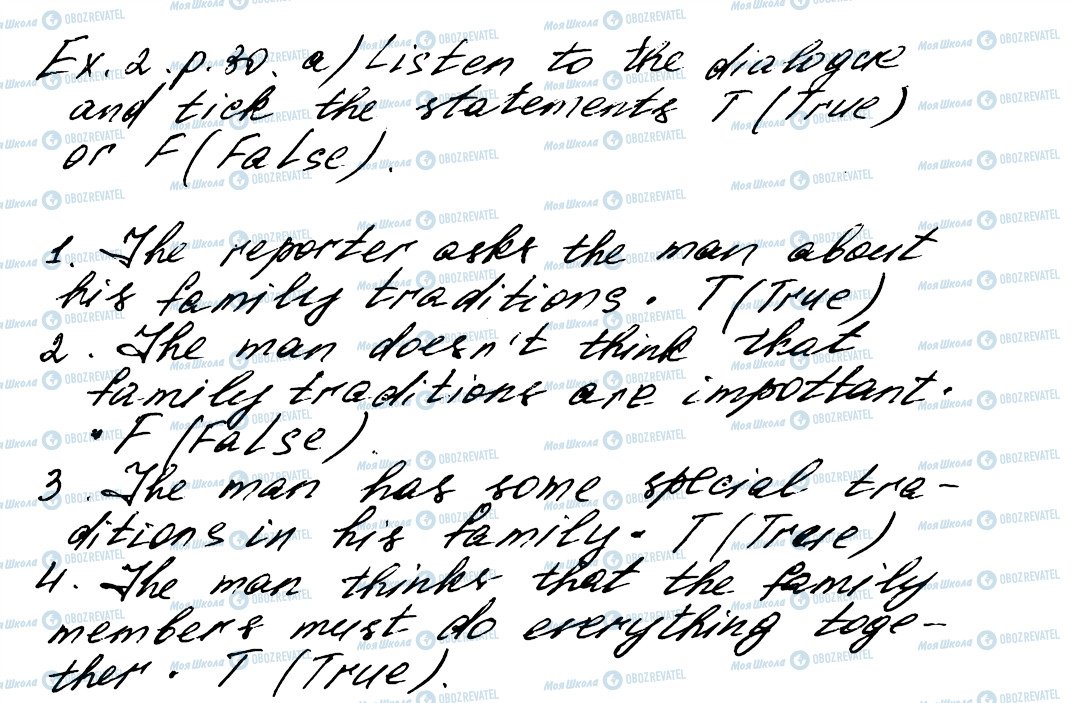 Ex. 2. p. 30. a) Listen to the dialogue
and tick the statements T (True)
or F (False).
1. The reporter asks the man about
his family traditions. T (True)
2. The man doesn't think that
family traditions are important.
F (False)
3. The man has some special tra-
ditions in his family. T (True)
4. The man thinks that the family
members must do everything toge-
ther. T (True).
МояШкола OBOZREVATEL